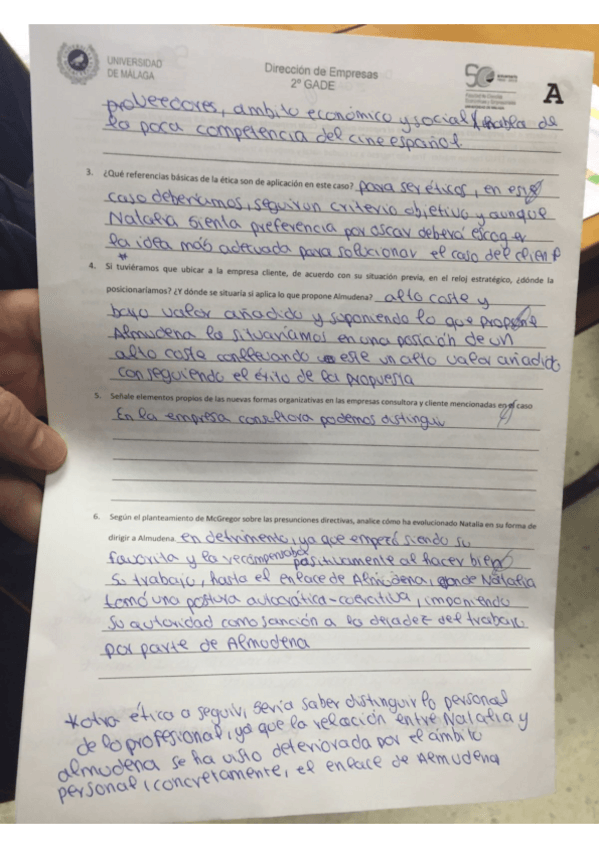 UNIVERSIDAD
DE MÁLAGA
Dirección de Empresas
2º GADE
A
proveedores, ámbito económico y social (habla de
la poca competencia del cine español.
3. ¿Qué referencias básicas de la ética son de aplicación en este caso? para ser éticos, en este
caso deberíamos, seguir un criterio objetivo y aunque
Natalia sienta preferencia por oscar deberá escoger
la idea más adecuada para solucionar el caso del client
*
4. Si tuviéramos que ubicar a la empresa cliente, de acuerdo con su situación previa, en el reloj estratégico, ¿dónde la
posicionaríamos? ¿Y dónde se situaría si aplica lo que propone Almudena? alto coste y
bajo valor añadido y suponiendo lo que propone
Almudena lo situaríamos en una posición de un
alto coste conllevando este un alto valor añadido
conseguiendo el éxito de la propuesta
5. Señale elementos propios de las nuevas formas organizativas en las empresas consultora y cliente mencionadas en el caso
En la empresa consultora podemos distinguir
6. Según el planteamiento de McGregor sobre las presunciones directivas, analice cómo ha evolucionado Natalia en su forma de
dirigir a Almudena. en detrimento, ya que empezó siendo su
favorita y la recompensaba positivamente al hacer bien
su trabajo, hasta el enlace de Almudena, donde Natalia
tomó una postura autocrática-coercitiva, imponiendo
su autoridad como sanción a la dejadez del trabajo
por parte de Almudena
*otra ética a seguir, sería saber distinguir lo personal
de lo profesional, ya que la relación entre Natalia y
almudena se ha visto deteriorada por el ámbito
personal, concretamente, el enlace de Almudena